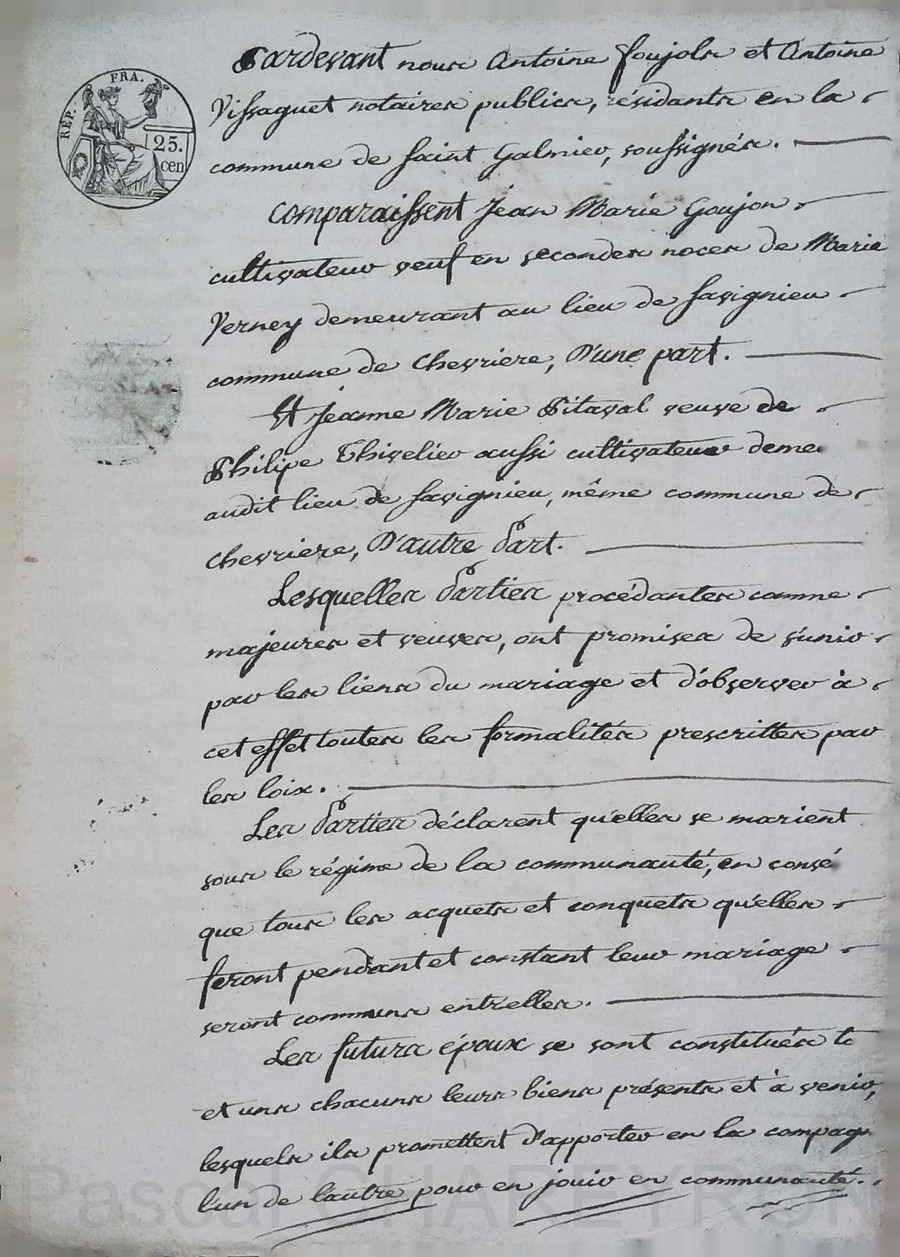 Pardevant nous Antoine Joujols et Antoine
Vissaguet notaires publics, résidants en la
commune de Saint Galmier, soussignés.
REP. FRA.
25.
cen
comparaissent Jean Marie Goujon
cultivateur veuf en secondes noces de Marie
Verney demeurant au lieu de Savignieu
commune de Chevriere, D'une part.
Et Jeanne Marie Pitaval veuve de
Philipe Thivelier aussi cultivateur deme
audit lieu de Savignieu, même commune de
Chevriere, D'autre Part.
Lesquelles Parties procédantes comme
majeures et veuves, ont promises de s'unir
par les liens du mariage et d'observer à
cet effet toutes les formalités prescrittes par
les loix.
Les Parties déclarent qu'elles se marient
sous le régime de la communauté, en consé
que tous les acquets et conquets qu'elles
feront pendant et constant leur mariage
seront communs entr'elles.
Les futurs époux se sont constitués t
et uns chacuns leurs biens présents et à venir,
lesquels ils promettent d'apporter en la compag
l'un de l'autre pour en jouir en communauté.
Pascal CHAREYRON